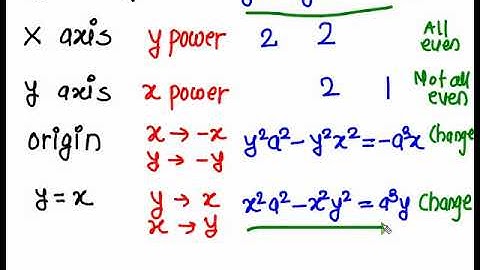 X axis y power 2 2 All even
y axis x power 2 1 Not all even
origin x → -x y → -y y²a² - y²x² = -a³x Change
y = x y → x x → y x²a² - x²y² = a³y Change